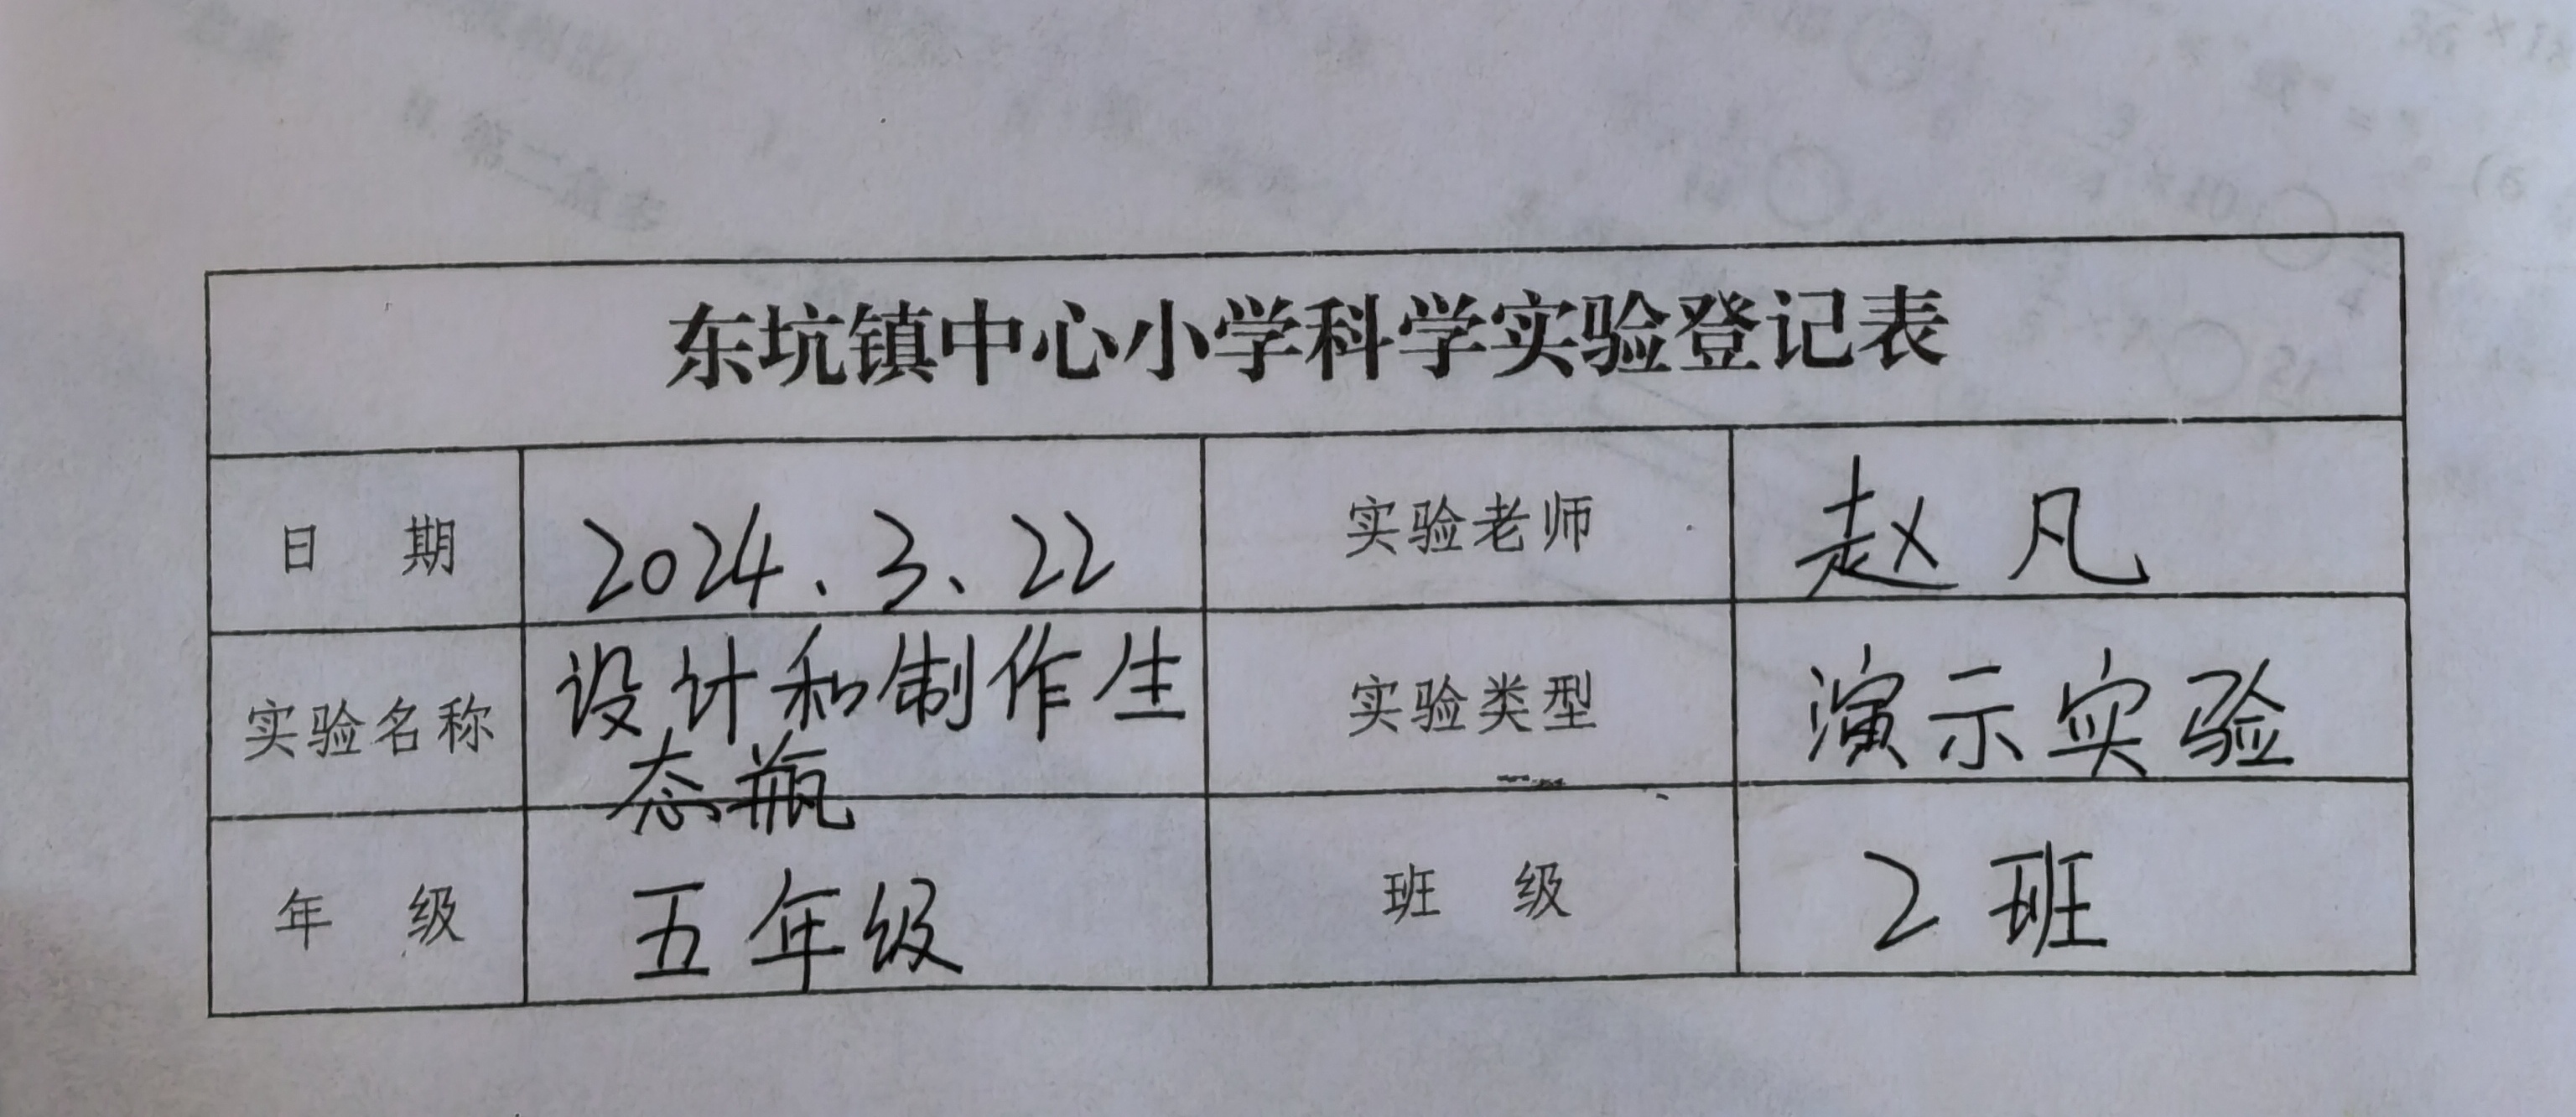 东坑镇中心小学科学实验登记表
日 期 2024.3.22 实验老师 赵凡
实验名称 设计和制作生 实验类型 演示实验
态瓶
年 级 五年级 班 级 2班